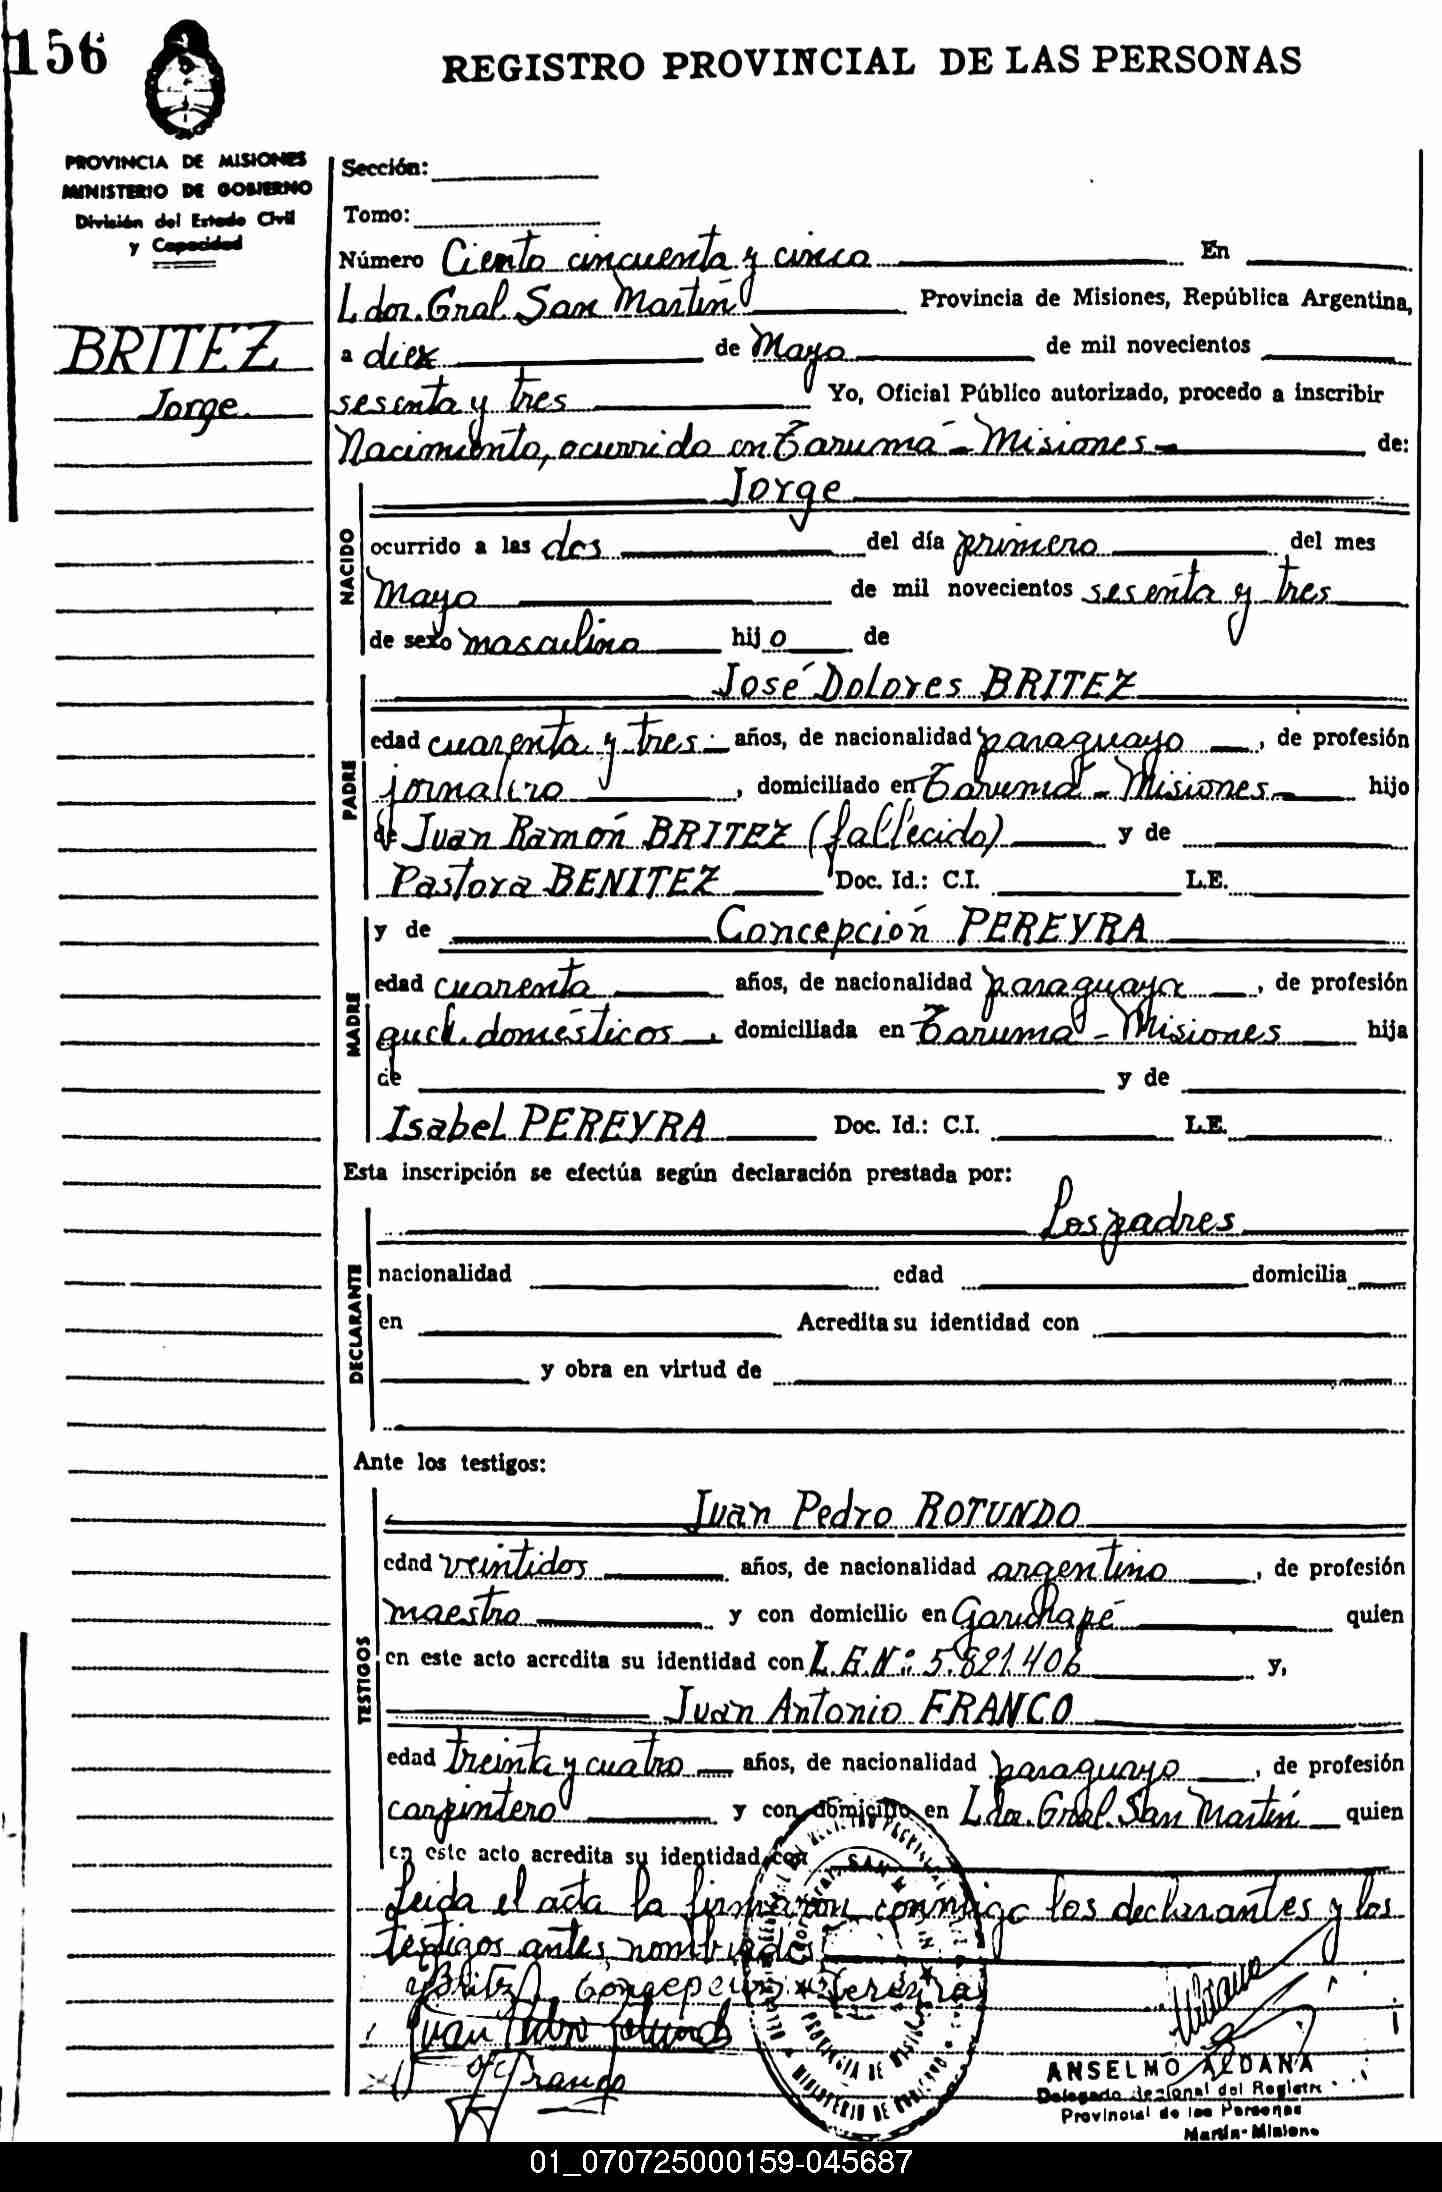 156
REGISTRO PROVINCIAL DE LAS PERSONAS
PROVINCIA DE MISIONES
MINISTERIO DE GOBIERNO
División del Estado Civil
y Capacidad
BRITEZ
Jorge
Sección:
Tomo:
Número Ciento cincuenta y cinco En
Ldor. Gral San Martín Provincia de Misiones, República Argentina,
a diez de Mayo de mil novecientos
sesenta y tres Yo, Oficial Público autorizado, procedo a inscribir
Nacimiento, ocurrido en Tarumá - Misiones - de:
NACIDO
Jorge
ocurrido a las dos del día primero del mes
Mayo de mil novecientos sesenta y tres
de sexo masculino hijo de
PADRE
José Dolores BRITEZ
edad cuarenta y tres - años, de nacionalidad paraguayo, de profesión
jornalero, domiciliado en Tarumá - Misiones - hijo
de Juan Ramón BRITEZ (fallecido) y de
Pastora BENITEZ Doc. Id.: C.I. L.E.
MADRE
y de Concepción PEREYRA
edad cuarenta años, de nacionalidad paraguaya, de profesión
queh. domésticos, domiciliada en Tarumá - Misiones hija
de y de
Isabel PEREYRA Doc. Id.: C.I. L.E.
Esta inscripción se efectúa según declaración prestada por:
DECLARANTE
Los padres
nacionalidad edad domicilia
en Acredita su identidad con
y obra en virtud de
Ante los testigos:
TESTIGOS
Juan Pedro ROTUNDO
edad veintidos años, de nacionalidad argentino, de profesión
maestro y con domicilio en Garuhapé quien
en este acto acredita su identidad con L.E.N.: 5.821.406 y,
Juan Antonio FRANCO
edad treinta y cuatro años, de nacionalidad paraguayo, de profesión
carpintero y con domicilio en Ldor. Gral. San Martín quien
en este acto acredita su identidad con
Leida el acta la firmaron conmigo los declarantes y los
testigos antes nombrados
Britez Concepcion Pereyra
Juan Pedro Rotundo
Franco
PROVINCIA DE MISIONES
MINISTERIO DE GOBIERNO
ANSELMO ALDANA
Delegado Regional del Registro
Provincial de las Personas
Martín-Misiones
01_070725000159-045687